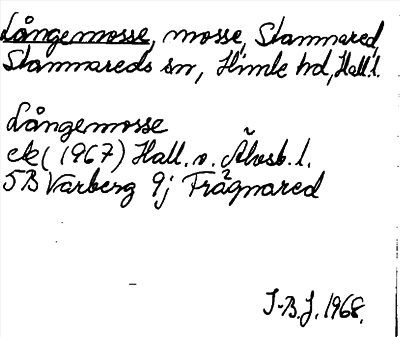 Långemosse, mosse, Stamnared,
Stamnareds sn, Himle hd, Hall. l.
Långemosse
ek (1967) Hall. o. Älvsb. l.
5B Varberg 9j Frågnared
J-B.J. 1968.